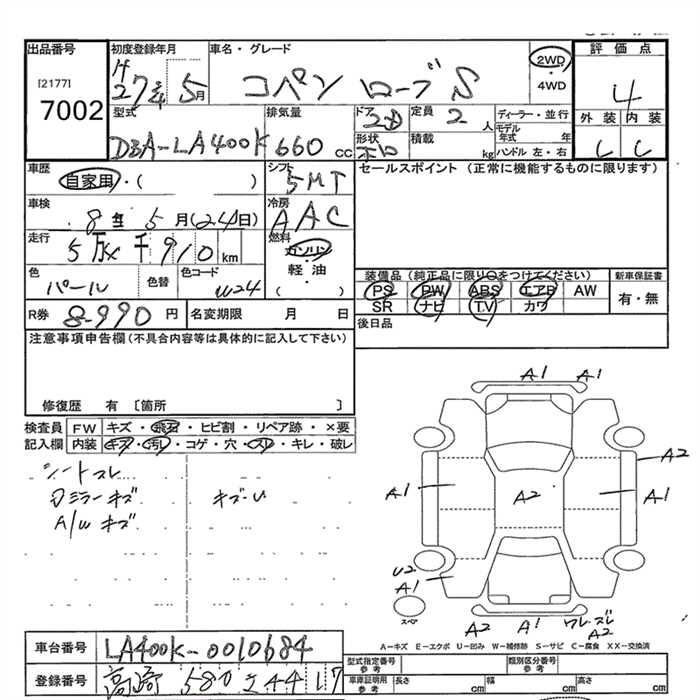 出品番号 初度登録年月 車名・グレード 評価点
[2177] H27年 5月 コペン ローブS 2WD ・ 4WD 4
7002
型式 排気量 ドア 2D 定員 2人 ディーラー・並行 外装 内装
DBA-LA400K 660cc 形状 積載 kg モデル年式 年 C C
ハンドル 左・右
車歴 シフト セールスポイント (正常に機能するものに限ります)
自家用・( ) 5MT
車検 冷房
8年 5月(24日) AAC
走行 燃料
5万 千910km ガソリン
軽・油
色 色替 色コード ( )
パール W24
装備品 (純正品に限り○をつけてください) 新車保証書
PS PW ABS エアB AW 有・無
SR ナビ TV カワ
R券 8-990円 名変期限 月 日 後日品
注意事項申告欄(不具合内容等は具体的に記入して下さい)
修復歴 有 〔箇所 〕
検査員 FW キズ・飛石・ヒビ割・リペア跡・×要
記入欄 内装 キズ・汚れ・コゲ・穴・スレ・キレ・破レ
シートスレ
ミラーキズ キズ・U
A/W キズ
A1 A1
A2
A1 A2 A1
U2
A1
スペア
A2 A1 ワレ・ズレ
A2
A-キズ E-エクボ U-凹み W-補修跡 S-サビ C-腐食 XX-交換済
車台番号 LA400K-0010684
型式指定番号 参考 類別区分番号 参考
登録番号 高崎 580 44 17
車庫証明用 参考 長さ cm 幅 cm 高さ cm